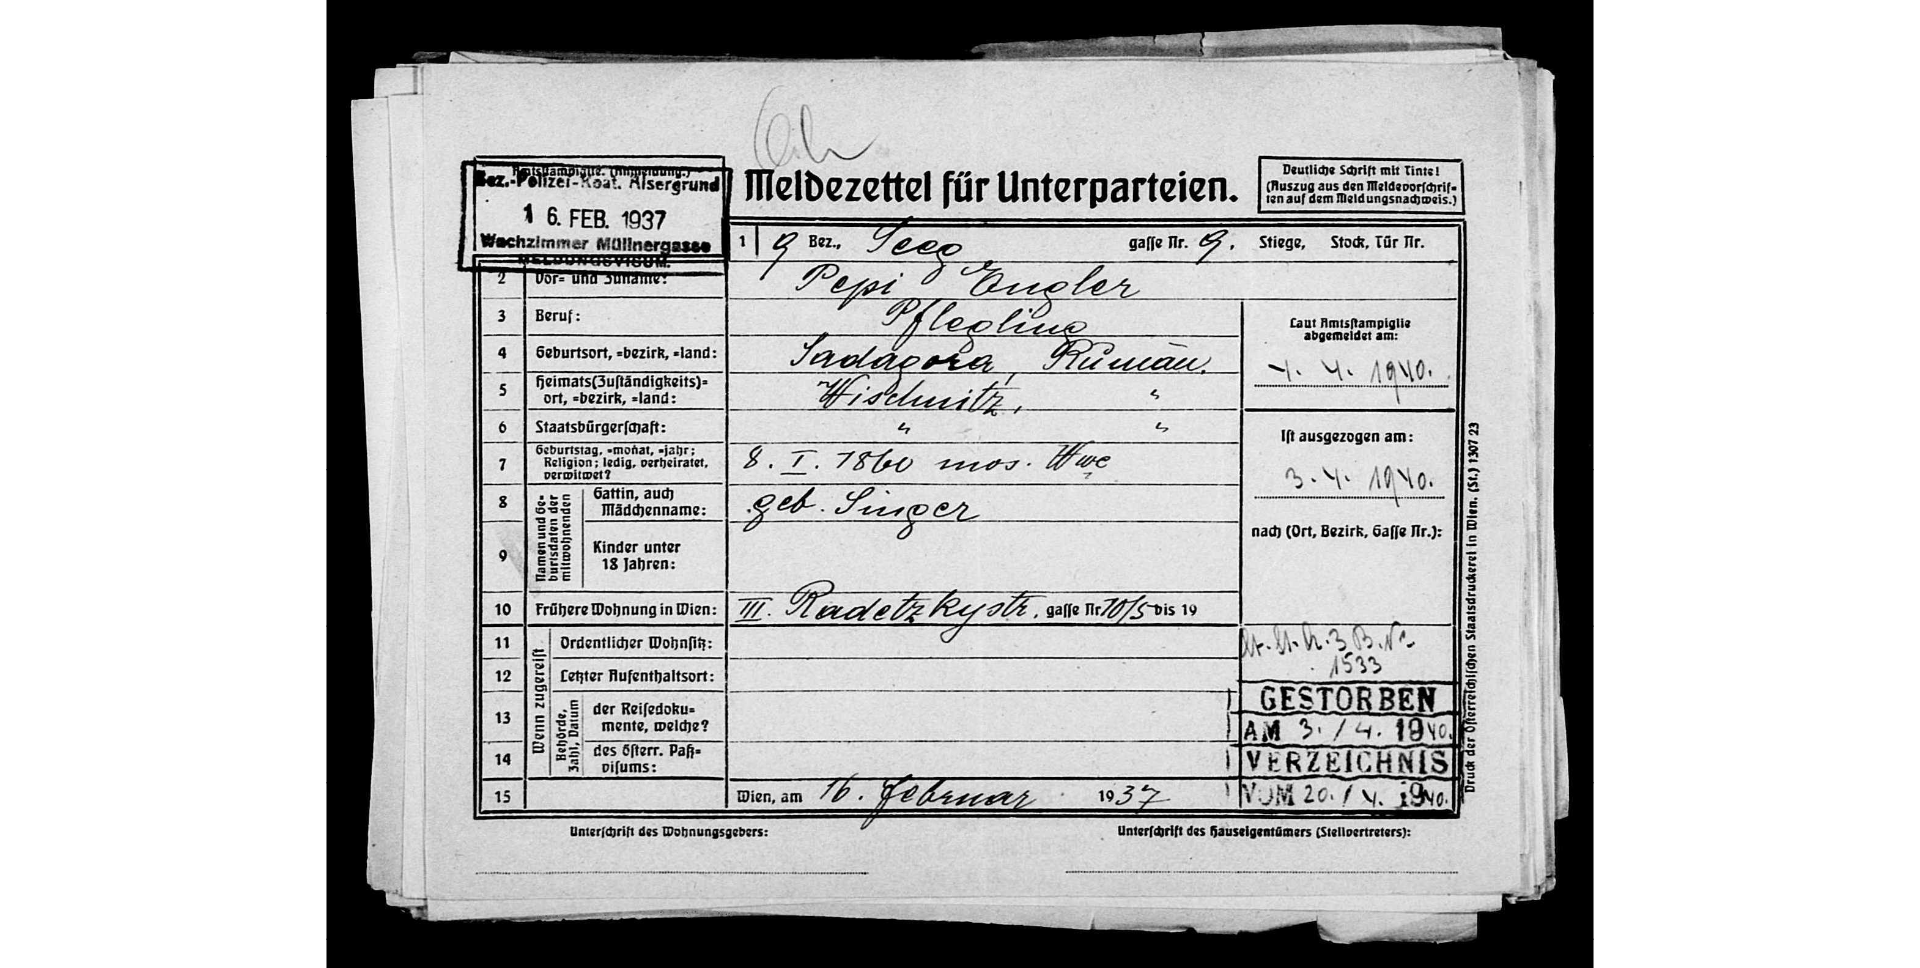 Amtsstampiglie. (Anmeldung.)
Bez.-Polizei-Koat. Alsergrund
16. FEB. 1937
Wachzimmer Müllnergasse
MELDUNGSVISUM.
Meldezettel für Unterparteien.
Deutliche Schrift mit Tinte!
(Auszug aus den Meldevorschrif-
ten auf dem Meldungsnachweis.)
1 9 Bez., Seeg gasse Nr. 9. Stiege, Stock, Tür Nr.
2 Vor- und Zuname: Pepi Engler
3 Beruf: Pflegling
4 Geburtsort, -bezirk, -land: Sadagora, Rumän.
5 Heimats(Zuständigkeits)-
ort, -bezirk, -land: Wischnitz, "
6 Staatsbürgerschaft: " "
7 Geburtstag, -monat, -jahr;
Religion; ledig, verheiratet,
verwitwet? 8. I. 1860 mos. Wwe
Namen und Ge-
burtsdaten der
mitwohnenden
8 Gattin, auch
Mädchenname: geb. Singer
9 Kinder unter
18 Jahren:
10 Frühere Wohnung in Wien: III. Radetzkystr. gasse Nr. 10/5 bis 19
Wenn zugereist
11 Ordentlicher Wohnsitz:
12 Letzter Aufenthaltsort:
Behörde,
Zahl, Datum
13 der Reisedoku-
mente, welche?
14 des österr. Paß-
visums:
15 Wien, am 16. Februar 1937
Laut Amtsstampiglie
abgemeldet am:
4. 4. 1940.
Ist ausgezogen am:
3. 4. 1940.
nach (Ort, Bezirk, Gasse Nr.):
3 B. Nr.
1533
GESTORBEN
AM 3. / 4. 1940.
VERZEICHNIS
VOM 20. / 4. 1940.
Druck der Österreichischen Staatsdruckerei in Wien. (St.) 1307 23
Unterschrift des Wohnungsgebers:
Unterschrift des Hauseigentümers (Stellvertreters):